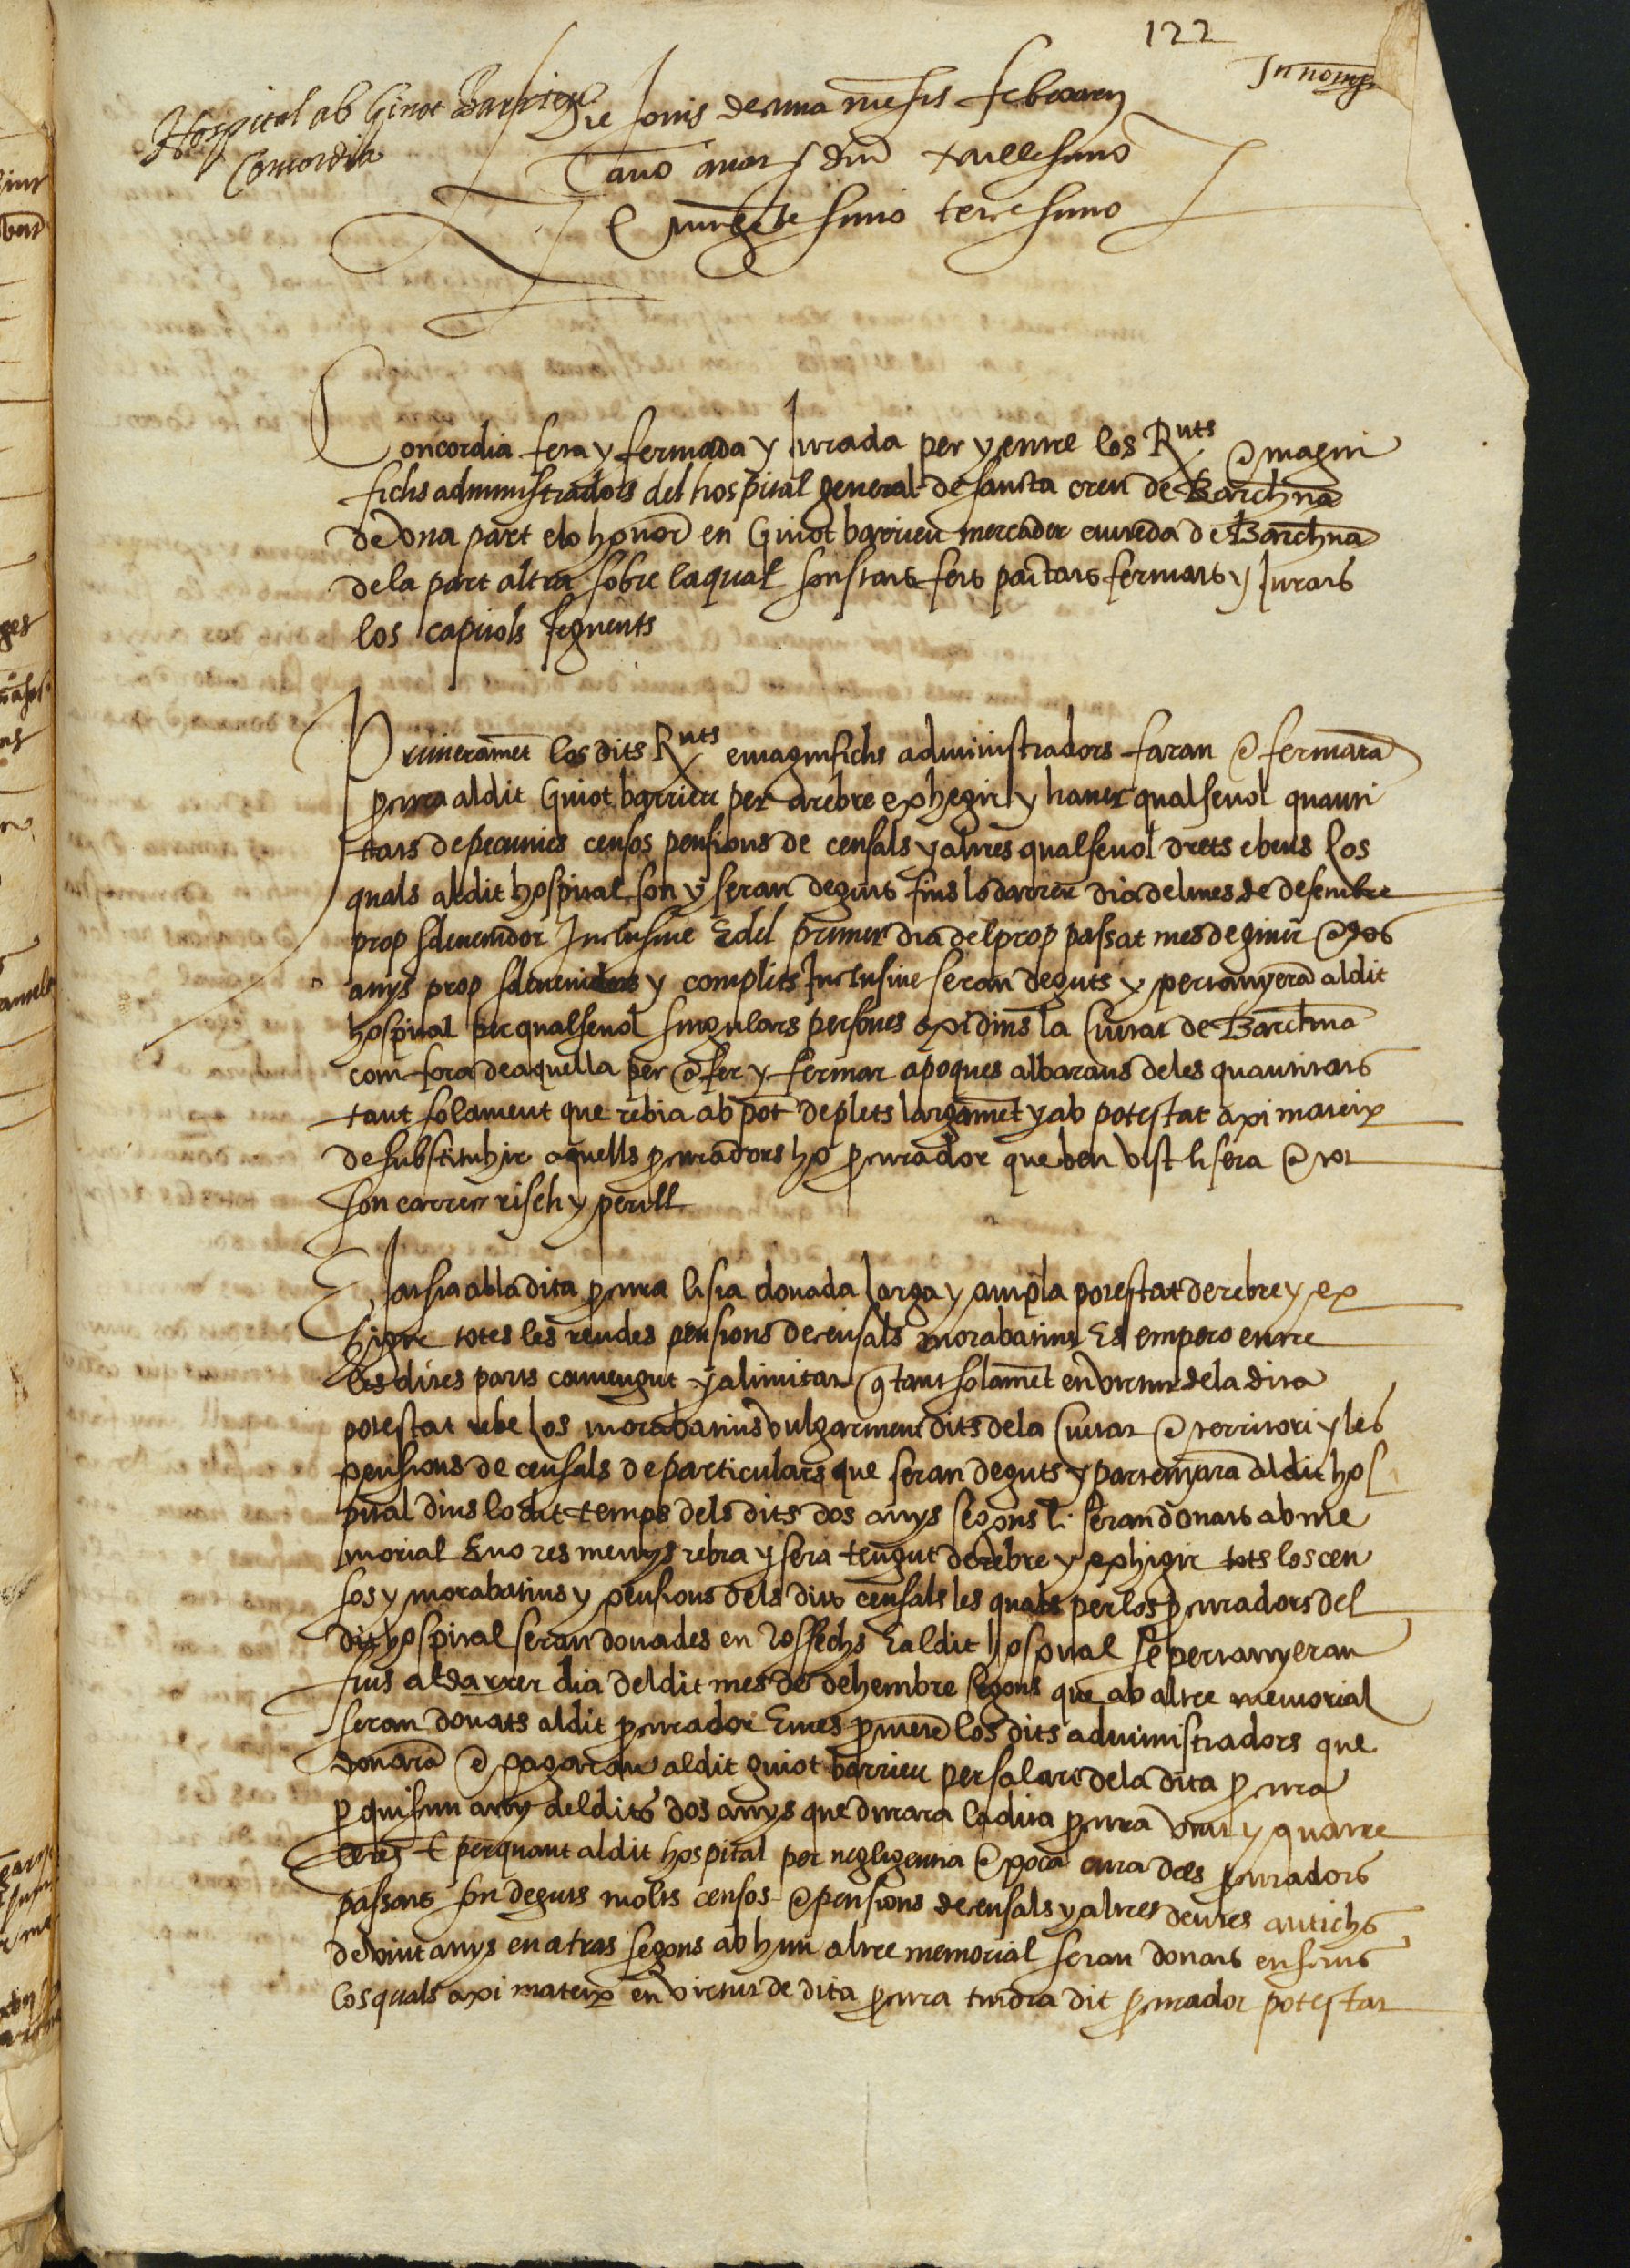 122
In nomine
Hospital ab Guiot Barrieu
Concordia
Die Jovis decima mensis februarij
anno a nat. dni Millesimo
Quingetesimo tercesimo
Concordia feta y fermada y Jurada per y entre los Rnts e magni
fichs administradors del hospital general de sancta creu de Barchna
de una part e lo honor en Guiot barrieu mercader ciuteda de Barchna
de la part altra sobre la qual son stats fets pactats fermats y Jurats
los capitols seguents
Primeramet los dits Rnts e magnifichs administradors faran e fermara
pcura al dit Guiot barrieu per a rebre exhegir y hauer qualseuol quanti
tats de pecunies censos pensions de censals y altres qualseuol drets e bens los
quals al dit hospital son y seran deguts fins lo darrer dia del mes de desembre
prop sdeuenidor Inclusiue E del primer dia del prop passat mes de giner e dos
anys prop sdeuenidors y complits Inclusiue seran deguts y pertanyera al dit
hospital per qualseuol singulars persones axi dins la Ciutat de Barchna
com fora de aquella per e fer y fermar apoques albarans de les quantitats
tant solament que rebia ab pot de plets largamet y ab potestat axi mateix
de substituhir aquells pcuradors ho pcurador que ben vist li sera e tot
son carrer risch y perill
E Jatsia ab la dita pcura li sia donada larga y ampla potestat de rebre y ex
higire totes les rendes pensions de censals morabatins Es empero entre
les dites parts conuengut y alimitat q tant solamet en virtut de la dita
potestat rebe los morabatins vulgarment dits de la Ciutat e territori y les
pensions de censals de particulars que seran deguts y partenyara al dit hos
pital dins lo dit temps dels dits dos anys segons li seran donats ab me
morial E no res menys rebra y sera tengut de rebre y exhigir tots los cen
sos y morabatins y pensions dels dits censals les quals per los pcuradors del
dit hospital seran donades en rossechs E al dit hospital se pertanyeran
fins al darrer dia del dit mes de dehembre segons que ab altre memorial
seran donats al dit pcurador E mes pmete los dits administradors que
donara e pagaran al dit guiot barrieu per salari de la dita pcura
p quiscun any dels dits dos anys que durara la dita pcura vint y quatre
liures E perquant al dit hospital per negligentia e poca cura dels pcuradors
passats son deguts molts censos e pensions de censals y altres deutes antichs
de vint anys en atras segons ab hun altre memorial seran donats en scrits
los quals axi mateix en virtut de dita pcura tindra dit pcurador potestat